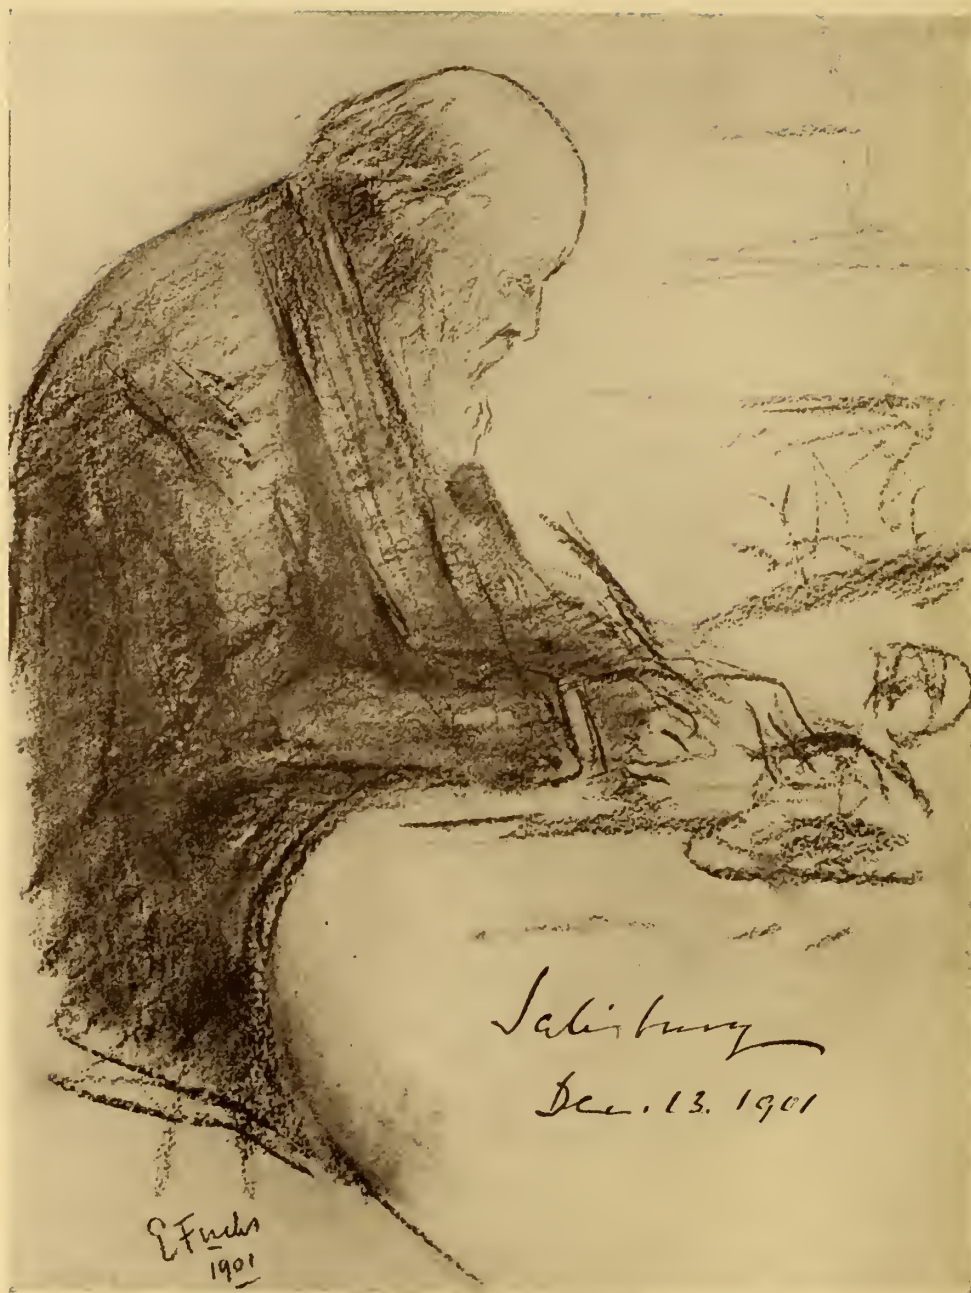 Salisbury
Dec. 13. 1901
E Fuchs
1901